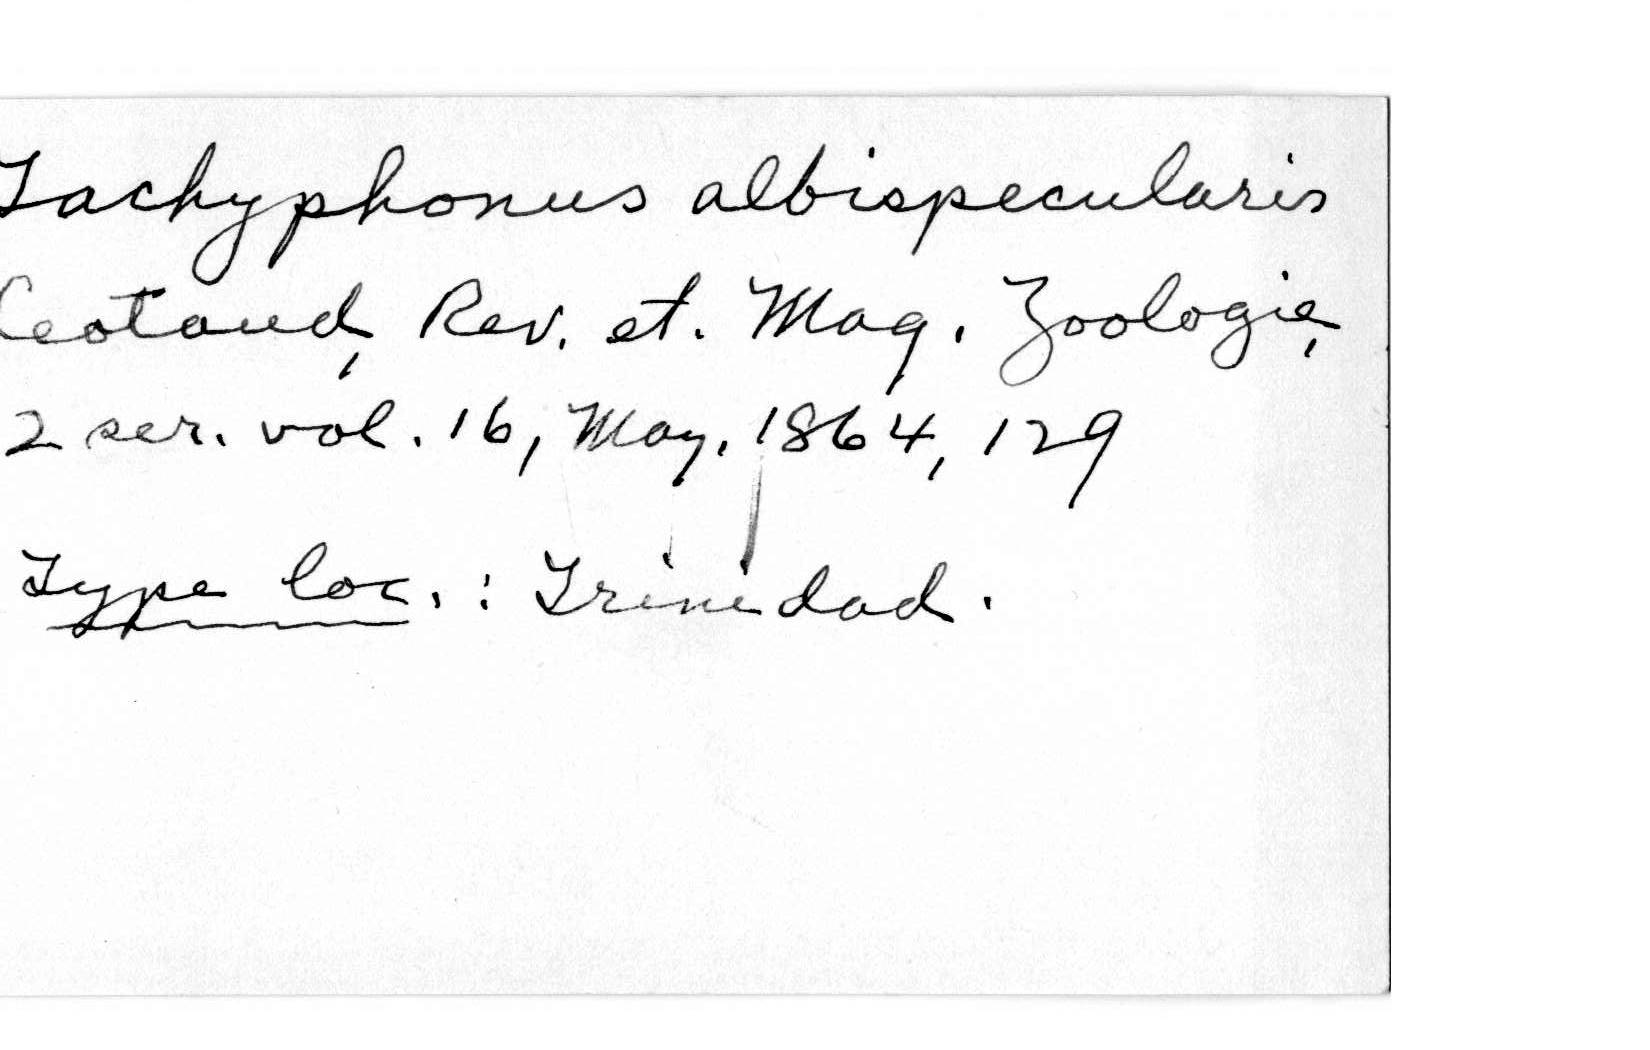 Tachyphonus albispecularis
Leotaud, Rev. et. Mag. Zoologie,
2 ser. vol. 16, May, 1864, 129
Type loc. : Trinidad.